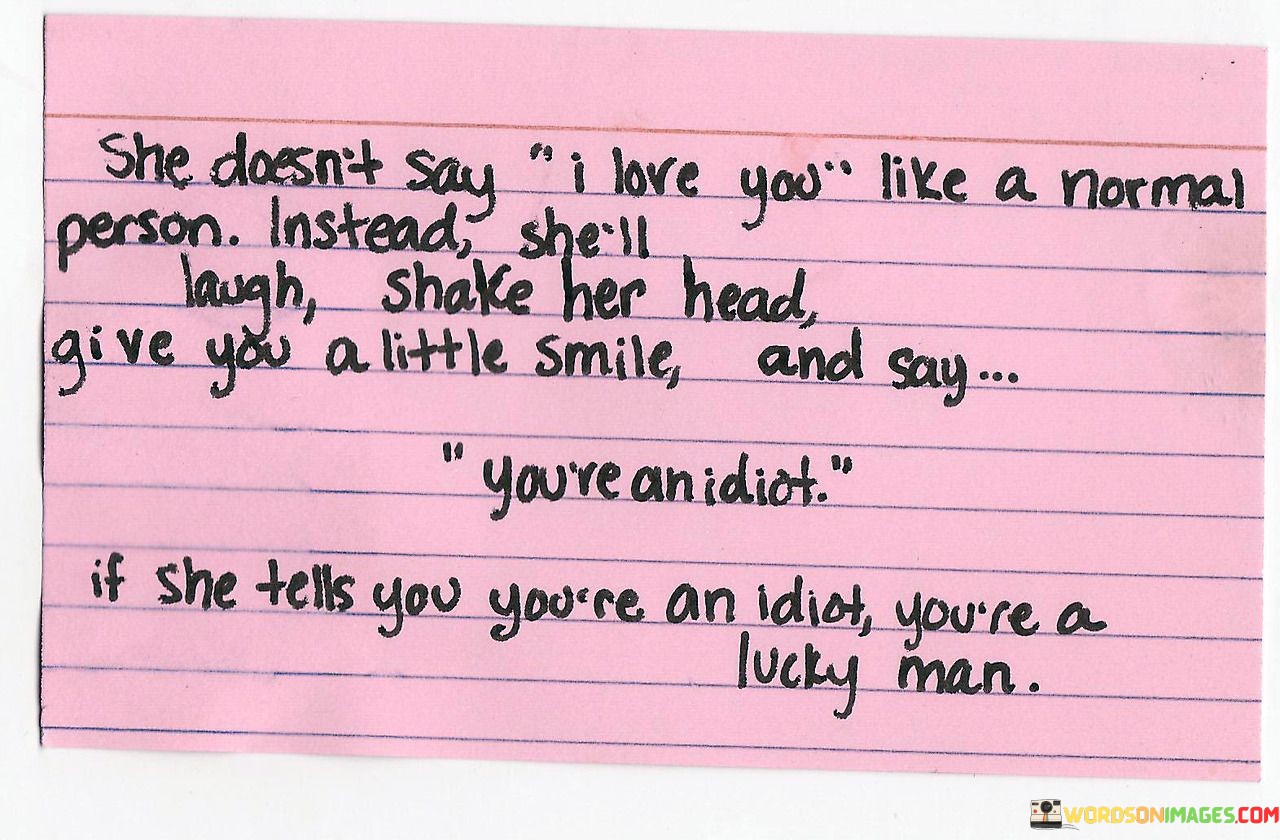 She doesn't say "i love you" like a normal
person. Instead, she'll
laugh, shake her head,
give you a little smile, and say...
"you're an idiot."
if she tells you you're an idiot, you're a
lucky man.
WORDSONIMAGES.COM